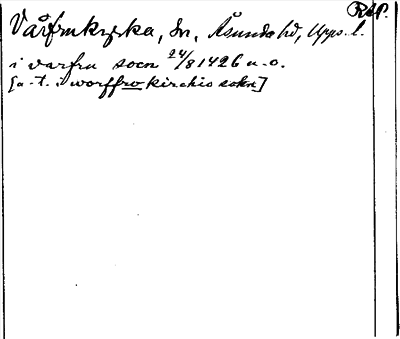 RAP.
Vårfrukyrka, sn, Åsunda hd, Upps. l.
i varfru socn 24/8 1426 u. o.
[a-t. i worffrw kirchio sokn]